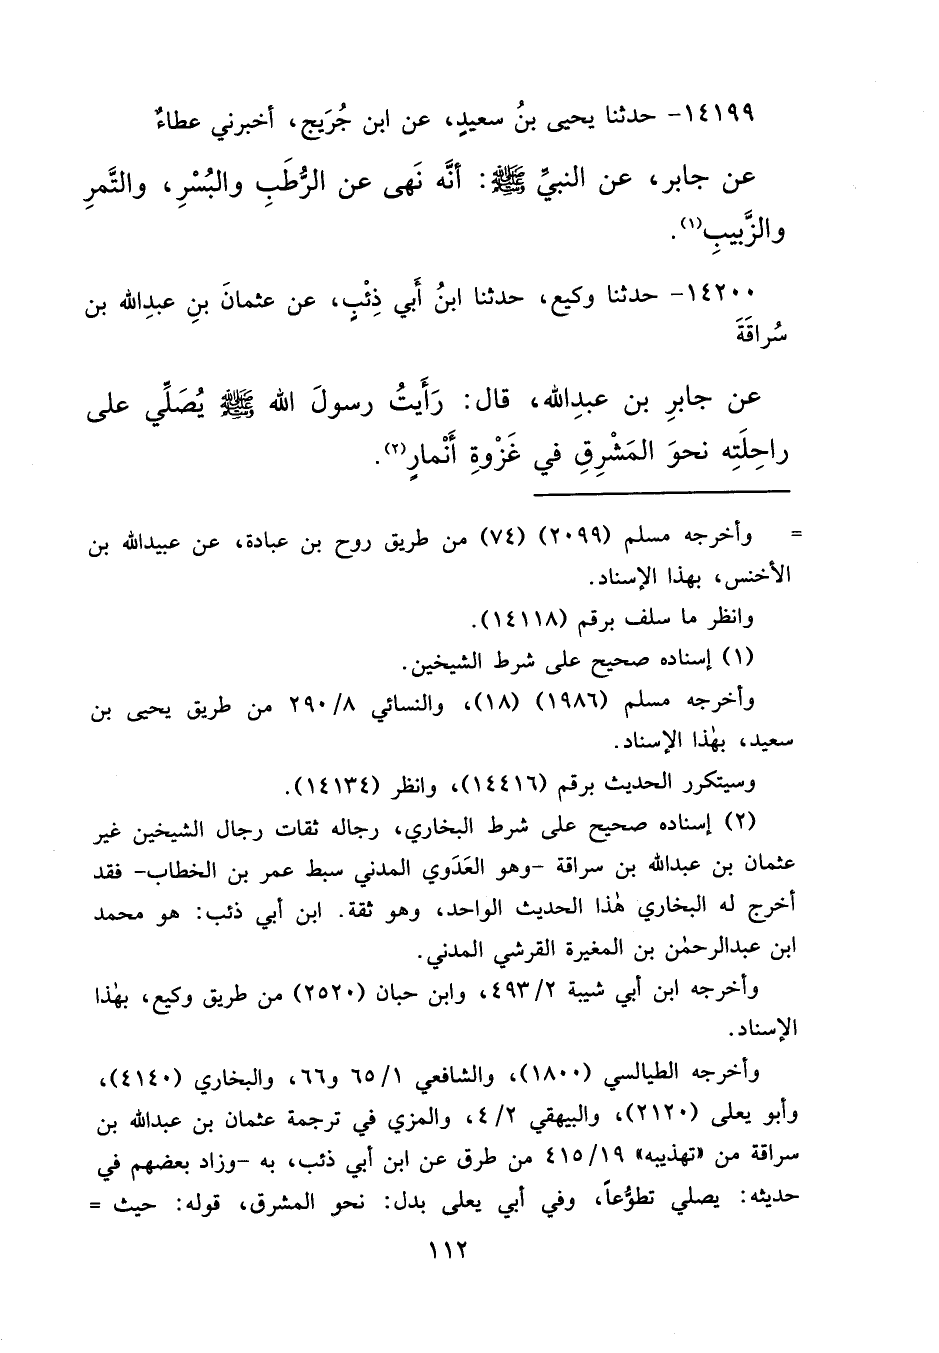 ١٤١٩٩- حدثنا يحيى بنُ سعيدٍ، عن ابن جُرَيج، أخبرني عطاءٌ
عن جابر، عن النبيِّ ﷺ: أنَّه نَهى عن الرُّطَبِ والبُسْرِ، والتَّمرِ
والزَّبيبِ(١).
١٤٢٠٠- حدثنا وكيع، حدثنا ابنُ أَبي ذِئْبٍ، عن عثمانَ بنِ عبدِالله بن
سُراقَةَ
عن جابرِ بن عبدِالله، قال: رَأَيتُ رسولَ الله ﷺ يُصَلِّي على
راحِلَتِه نحوَ المَشْرِقِ في غَزْوةِ أَنْمارٍ(٢).
= وأخرجه مسلم (٢٠٩٩) (٧٤) من طريق روح بن عبادة، عن عبيدالله بن
الأخنس، بهذا الإسناد.
وانظر ما سلف برقم (١٤١١٨).
(١) إسناده صحيح على شرط الشيخين.
وأخرجه مسلم (١٩٨٦) (١٨)، والنسائي ٢٩٠/٨ من طريق يحيى بن
سعيد، بهٰذا الإسناد.
وسيتكرر الحديث برقم (١٤٤١٦)، وانظر (١٤١٣٤).
(٢) إسناده صحيح على شرط البخاري، رجاله ثقات رجال الشيخين غير
عثمان بن عبدالله بن سراقة -وهو العَدَوي المدني سبط عمر بن الخطاب- فقد
أخرج له البخاري هٰذا الحديث الواحد، وهو ثقة. ابن أبي ذئب: هو محمد
ابن عبدالرحمٰن بن المغيرة القرشي المدني.
وأخرجه ابن أبي شيبة ٤٩٣/٢، وابن حبان (٢٥٢٠) من طريق وكيع، بهٰذا
الإسناد.
وأخرجه الطيالسي (١٨٠٠)، والشافعي ٦٥/١ و٦٦، والبخاري (٤١٤٠)،
وأبو يعلى (٢١٢٠)، والبيهقي ٤/٢، والمزي في ترجمة عثمان بن عبدالله بن
سراقة من «تهذيبه» ٤١٥/١٩ من طرق عن ابن أبي ذئب، به -وزاد بعضهم في
حديثه: يصلي تطوُّعاً، وفي أبي يعلى بدل: نحو المشرق، قوله: حيث =
١١٢